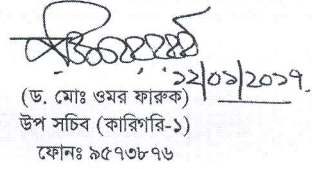 ১২/০১/২০১৭
(ড. মোঃ ওমর ফারুক)
উপ সচিব (কারিগরি-১)
ফোনঃ ৯৫৭৩৮৭৬